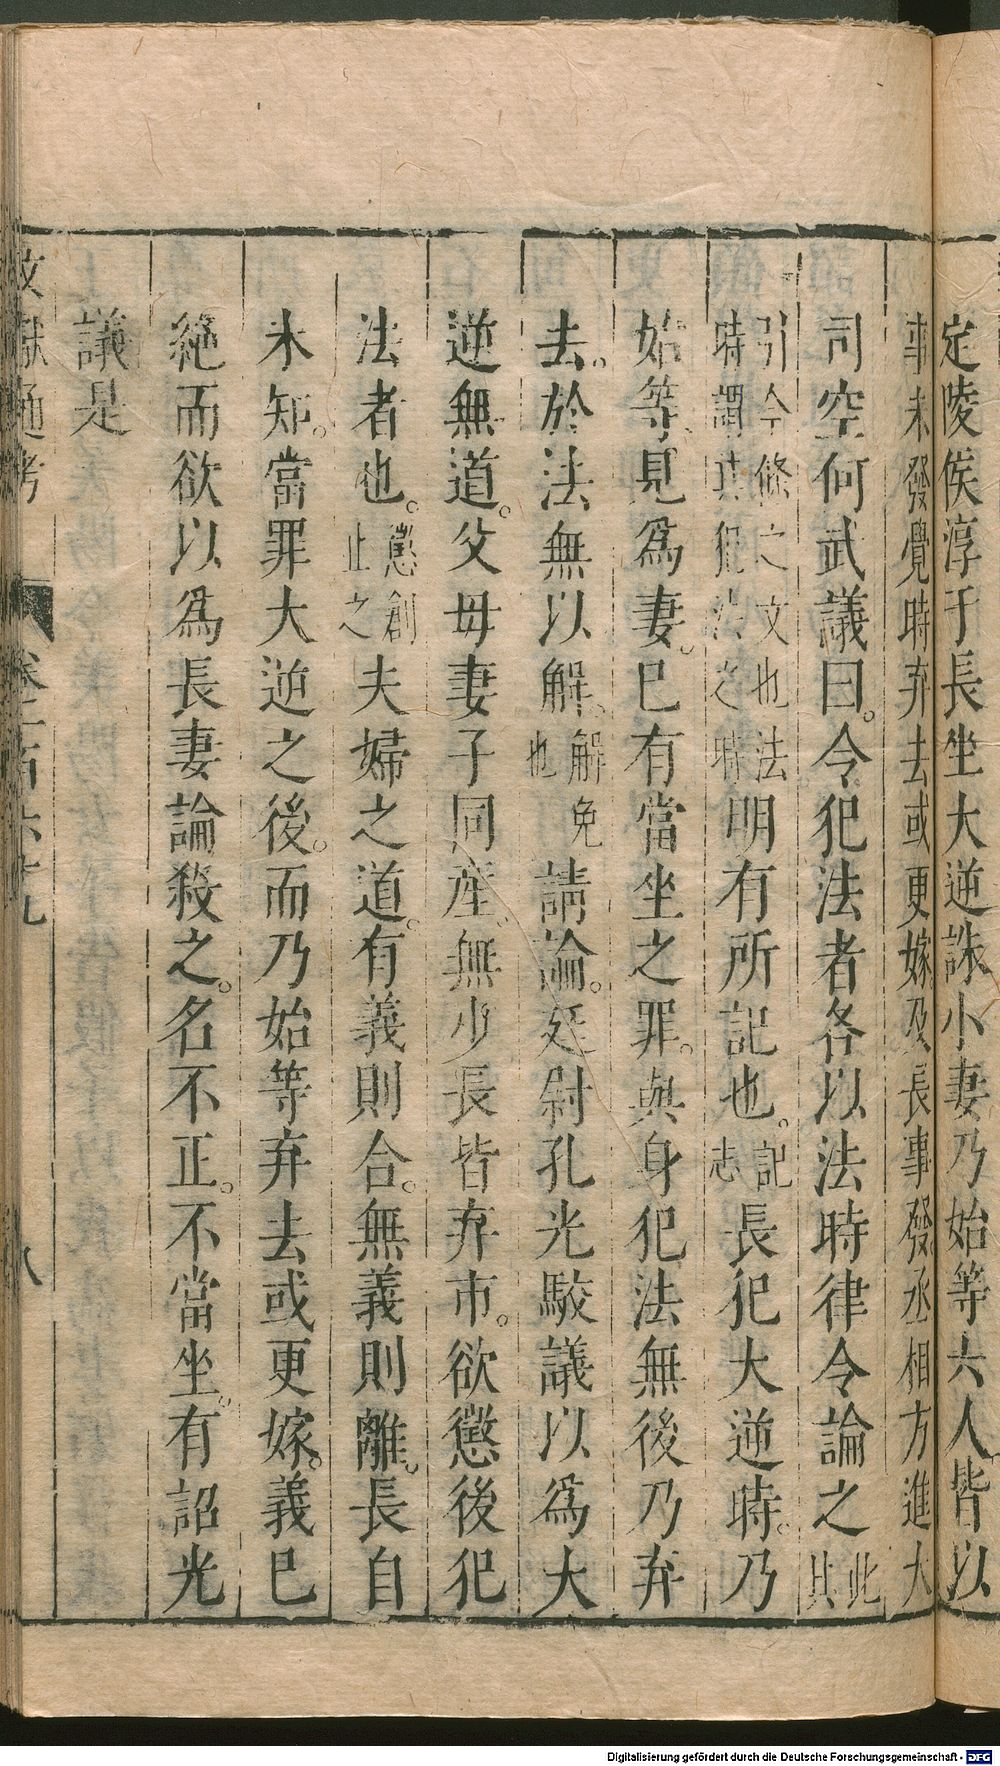 定陵侯淳于長坐大逆誅小妻乃始等六人皆以
事未發覺時弃去或更嫁及長事發丞相方進大
司空何武議曰。令犯法者各以法時律令論之此其
引令條之文也法時謂其犯法之時明有所記也。記志長犯大逆時。乃
始等見爲妻。已有當坐之罪。與身犯法無後乃弃
去。於法無以解。解免也請論。廷尉孔光駮議以爲大
逆無道。父母妻子同産。無少長皆弃市。欲懲後犯
法者也。懲創止之夫婦之道。有義則合。無義則離。長自
未知。當罪大逆之後。而乃始等弃去或更嫁。義已
絶而欲以爲長妻論殺之。名不正。不當坐。有詔光
議是
文獻通考 卷一百六十九 八
Digitalisierung gefördert durch die Deutsche Forschungsgemeinschaft - DFG